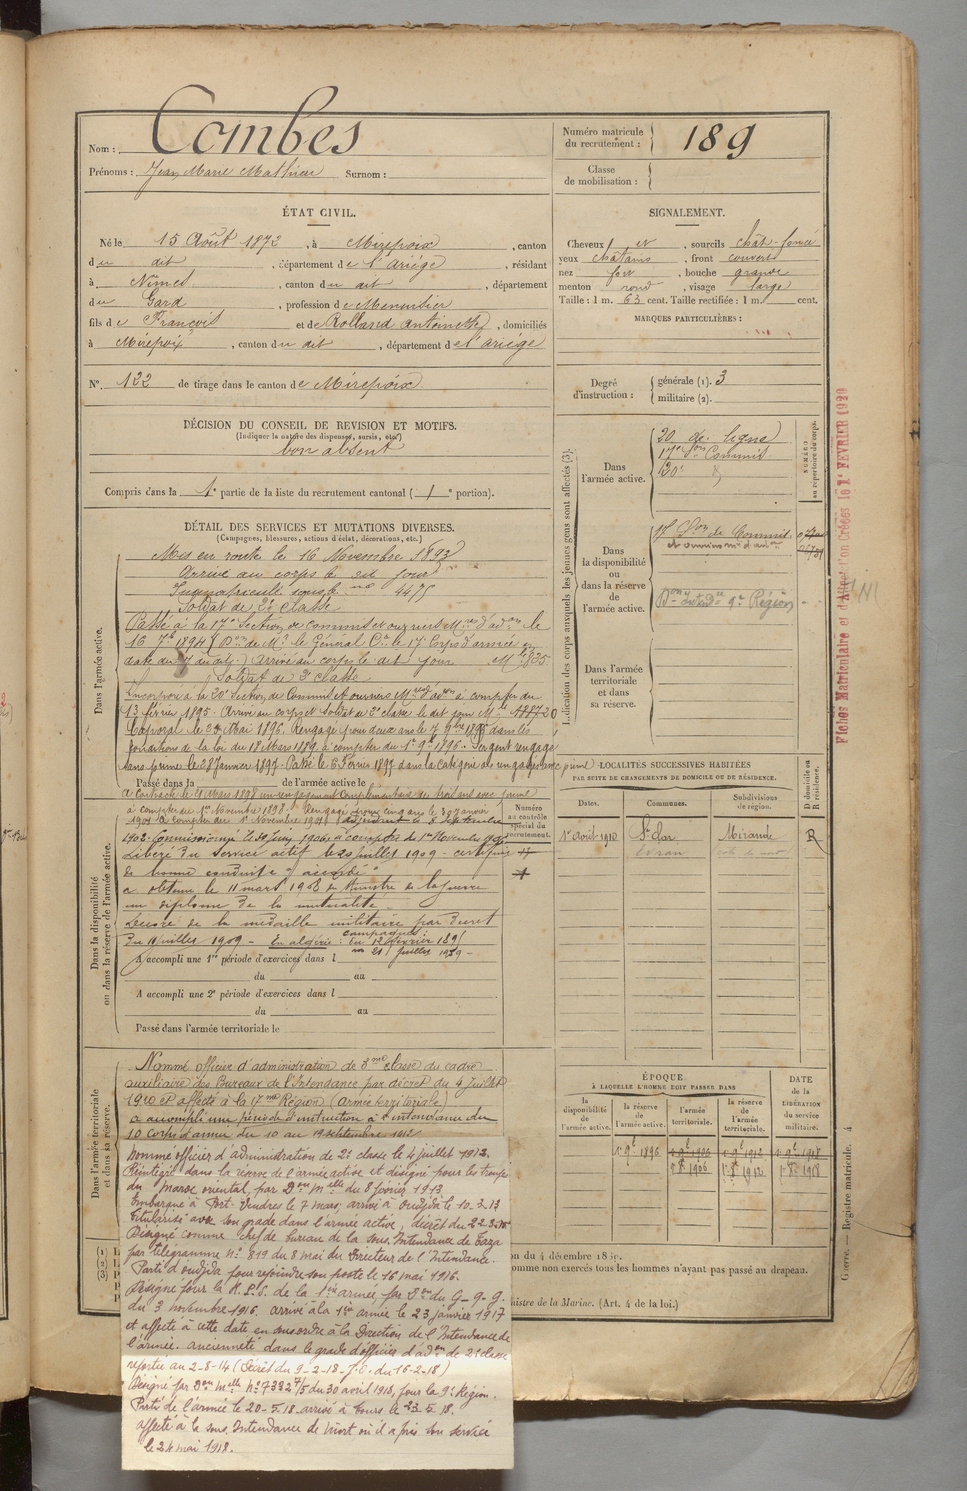 Nom : Combes
Prénoms : Jean Marie Mathieu Surnom :
Numéro matricule du recrutement : 189
Classe de mobilisation :
ÉTAT CIVIL.
Né le 15 Août 1872, à Mirepoix, canton
du dit, département de l'Ariége, résidant
à Nîmes, canton du dit, département
du Gard, profession de Menuisier
fils de François et de Rolland Antoinette, domiciliés
à Mirepoix, canton du dit, département de l'ariége
N° 122 de tirage dans le canton de Mirepoix
SIGNALEMENT.
Cheveux et, sourcils chât. foncé
yeux chatains, front couvert
nez fort, bouche grande
menton rond, visage large
Taille : 1 m. 63 cent. Taille rectifiée : 1 m. cent.
MARQUES PARTICULIÈRES :
Degré d'instruction : générale (1). 3
militaire (2).
DÉCISION DU CONSEIL DE REVISION ET MOTIFS.
(Indiquer la nature des dispenses, sursis, etc.)
bon absent
Compris dans la 1e partie de la liste du recrutement cantonal (1e portion).
DÉTAIL DES SERVICES ET MUTATIONS DIVERSES.
(Campagnes, blessures, actions d'éclat, décorations, etc.)
Dans l'armée active.
Mis en route le 16 Novembre 1893
Arrivé au corps le dit jour
Immatriculé sous le no 4475
Soldat de 2e classe
Passé à la 17e Section de commis et ouvriers Mres d'adon le
16 7bre 1894 (Don de Mr le Général Ct le 17e Corps d'armée en
date du 7 du dit) arrivé au corps le dit jour Mle 835
Soldat de 2e classe
Incorporé à la 20e Section de Commis et ouvriers Mres d'adon à compter du
13 février 1895. Arrivé au corps et soldat de 2e classe le dit jour
Caporal le Mai 1896. Rengagé pour deux ans le 7 9bre 1895 dans les
conditions de la loi du 18 Mars 1889 à compter du 1er 9bre 1896. Sergent rengagé
sans prime le 28 Janvier 1897. Passé le 6 Février 1897 dans la catégorie des rengagés avec prime
Passé dans la de l'armée active le
a contracté le Mars 1898 un rengagement complémentaire de trois ans avec prime
à compter du 1er Novembre 1898. Rengagé pour cinq ans le 30 janvier
1901 à compter du 1er Novembre 1901 adjudant le Septembre
1902. Commissionné le 30 Juin 1906 à compter du 1er Novembre 1906
Libéré du service actif le 20 juillet 1909 - certificat
de bonne conduite "accordé"
a obtenu le 11 mars 1908 du Ministre de la guerre
un diplome de la mutualité
Décoré de la médaille militaire par Décret
du 11 juillet 1909 - campagnes : En algérie : du 12 février 189
au 21 juillet 1909 -
Dans la disponibilité ou dans la réserve de l'armée active.
A accompli une 1re période d'exercices dans l
du au
A accompli une 2e période d'exercices dans l
du au
Passé dans l'armée territoriale le
Numéro au contrôle spécial du recrutement.
Indication des corps auxquels les jeunes gens sont affectés (3).
Dans l'armée active.
20 de ligne
17e Son Commis
20e
NUMÉRO au répertoire du corps.
Dans la disponibilité ou dans la réserve de l'armée active.
17e Son de Commis
et ouvriers mres d'adon
Bau Intdce 9e Région
Dans l'armée territoriale et dans sa réserve.
Fiches Matriculaire et d'Affectation Créées le 1 FEVRIER 1920
LOCALITÉS SUCCESSIVES HABITÉES
PAR SUITE DE CHANGEMENTS DE DOMICILE OU DE RÉSIDENCE.
Dates. Communes. Subdivisions de région. D domicile ou R résidence.
1er Avril 1910 St Clar Mirande R
ÉPOQUE
À LAQUELLE L'HOMME DOIT PASSER DANS
la disponibilité de l'armée active.
la réserve de l'armée active.
l'armée territoriale.
la réserve de l'armée territoriale.
DATE de la LIBÉRATION du service militaire.
1er 9bre 1896 1er 9bre 1906 1er 9bre 1912 1er 9bre 1918
1er 8bre 1906 1er 8bre 1912 1er 8bre 1918
Dans l'armée territoriale et dans sa réserve.
Nommé officier d'administration de 3me classe du cadre
auxiliaire des Bureaux de l'Intendance par décret du 4 juillet
1910 et affecté à la 17me Région (Armée territoriale)
a accompli une période d'instruction à l'intendance du
10 Corps d'armée du 10 au 19 septembre 1912
Nommé officier d'administration de 2e classe le 4 juillet 1912.
Réintégré dans la réserve de l'armée active et désigné pour les troupes
du Maroc oriental, par Don Melle du 8 février 1913
Embarqué à Port-Vendres le 7 mars, arrivé à Oudjda le 10.3.13
Titularisé avec son grade dans l'armée active, décret du
Désigné comme chef de bureau de la sous. Intendance de Taza
par télégramme N° 819 du 8 mai du Directeur de l'Intendance.
Parti d'oudjda pour rejoindre son poste le 16 mai 1916.
Désigné pour la R.E.S. de la 1ère armée, par Don du G-q-g.
du 3 novembre 1916. arrivé à la 1ère armée le 23 janvier 1917
et affecté à cette date, en sous ordre à la Direction de l'Intendance de
l'armée. ancienneté dans le grade d'officier d'adon de 2e classe
reportée au 2-8-14 (Décret du 9-2-18 - J.O. du 16-2-18)
Désigné par Don Melle N° 7392 7/5 du 30 avril 1918, pour la 9e Région.
Parti de l'armée le 20-5-18. arrivé à Tours le 23-5-18.
affecté à la sous. Intendance de Niort où il a pris son service
le 24 mai 1918.
on du 4 décembre 18
omme non exercés tous les hommes n'ayant pas passé au drapeau.
nistre de la Marine. (Art. 4 de la loi.)
Guerre. — Registre matricule. 4